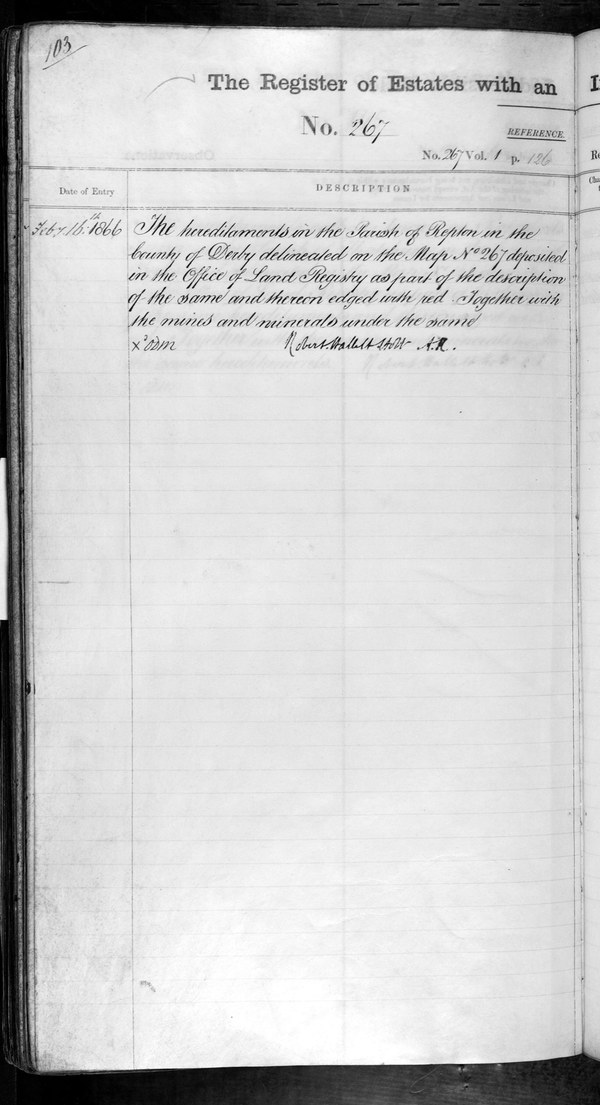 103
The Register of Estates with an
No. 267
REFERENCE.
No. 267 Vol. 1 p. 126
Date of Entry
DESCRIPTION
Feby 16th 1866
The hereditaments in the Parish of Repton in the
County of Derby delineated on the Map No 267 deposited
in the Office of Land Registry as part of the description
of the same and thereon edged with red. Together with
the mines and minerals under the same
Robert Hallett A.R.